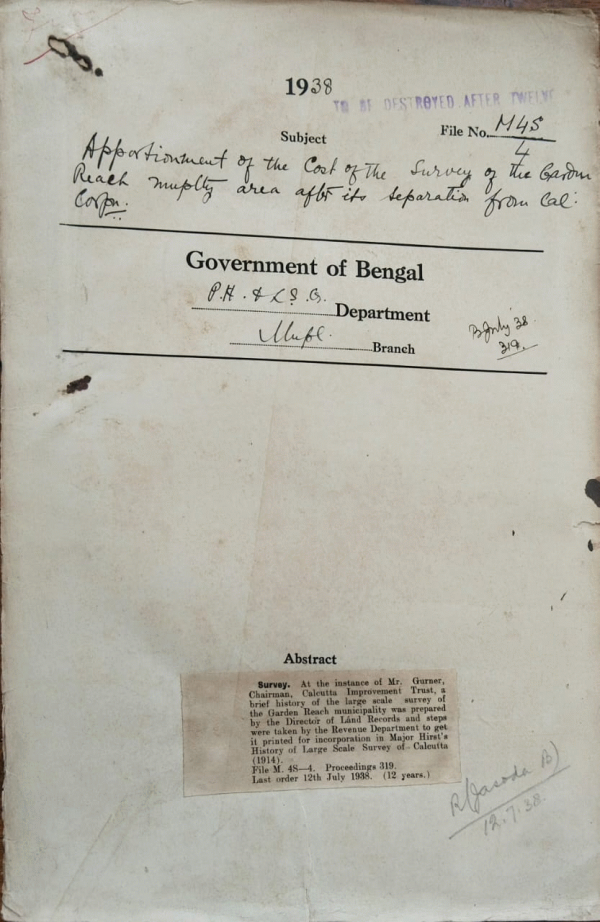 1938
TO BE DESTROYED AFTER TWELVE
Subject
File No. M4S/4
Apportionment of the Cost of the Survey of the Garden
Reach muplty area after its separation from Cal:
Corpn.
Government of Bengal
P.H. & L.S.G. Department
Branch
B July '38
319.
Abstract
Survey. At the instance of Mr. Gurner,
Chairman, Calcutta Improvement Trust, a
brief history of the large scale survey of
the Garden Reach municipality was prepared
by the Director of Land Records and steps
were taken by the Revenue Department to get
it printed for incorporation in Major Hirst's
History of Large Scale Survey of Calcutta
(1914).
File M. 4S—4. Proceedings 319.
Last order 12th July 1938. (12 years.)
R(Jasoda B)
12.7.38.